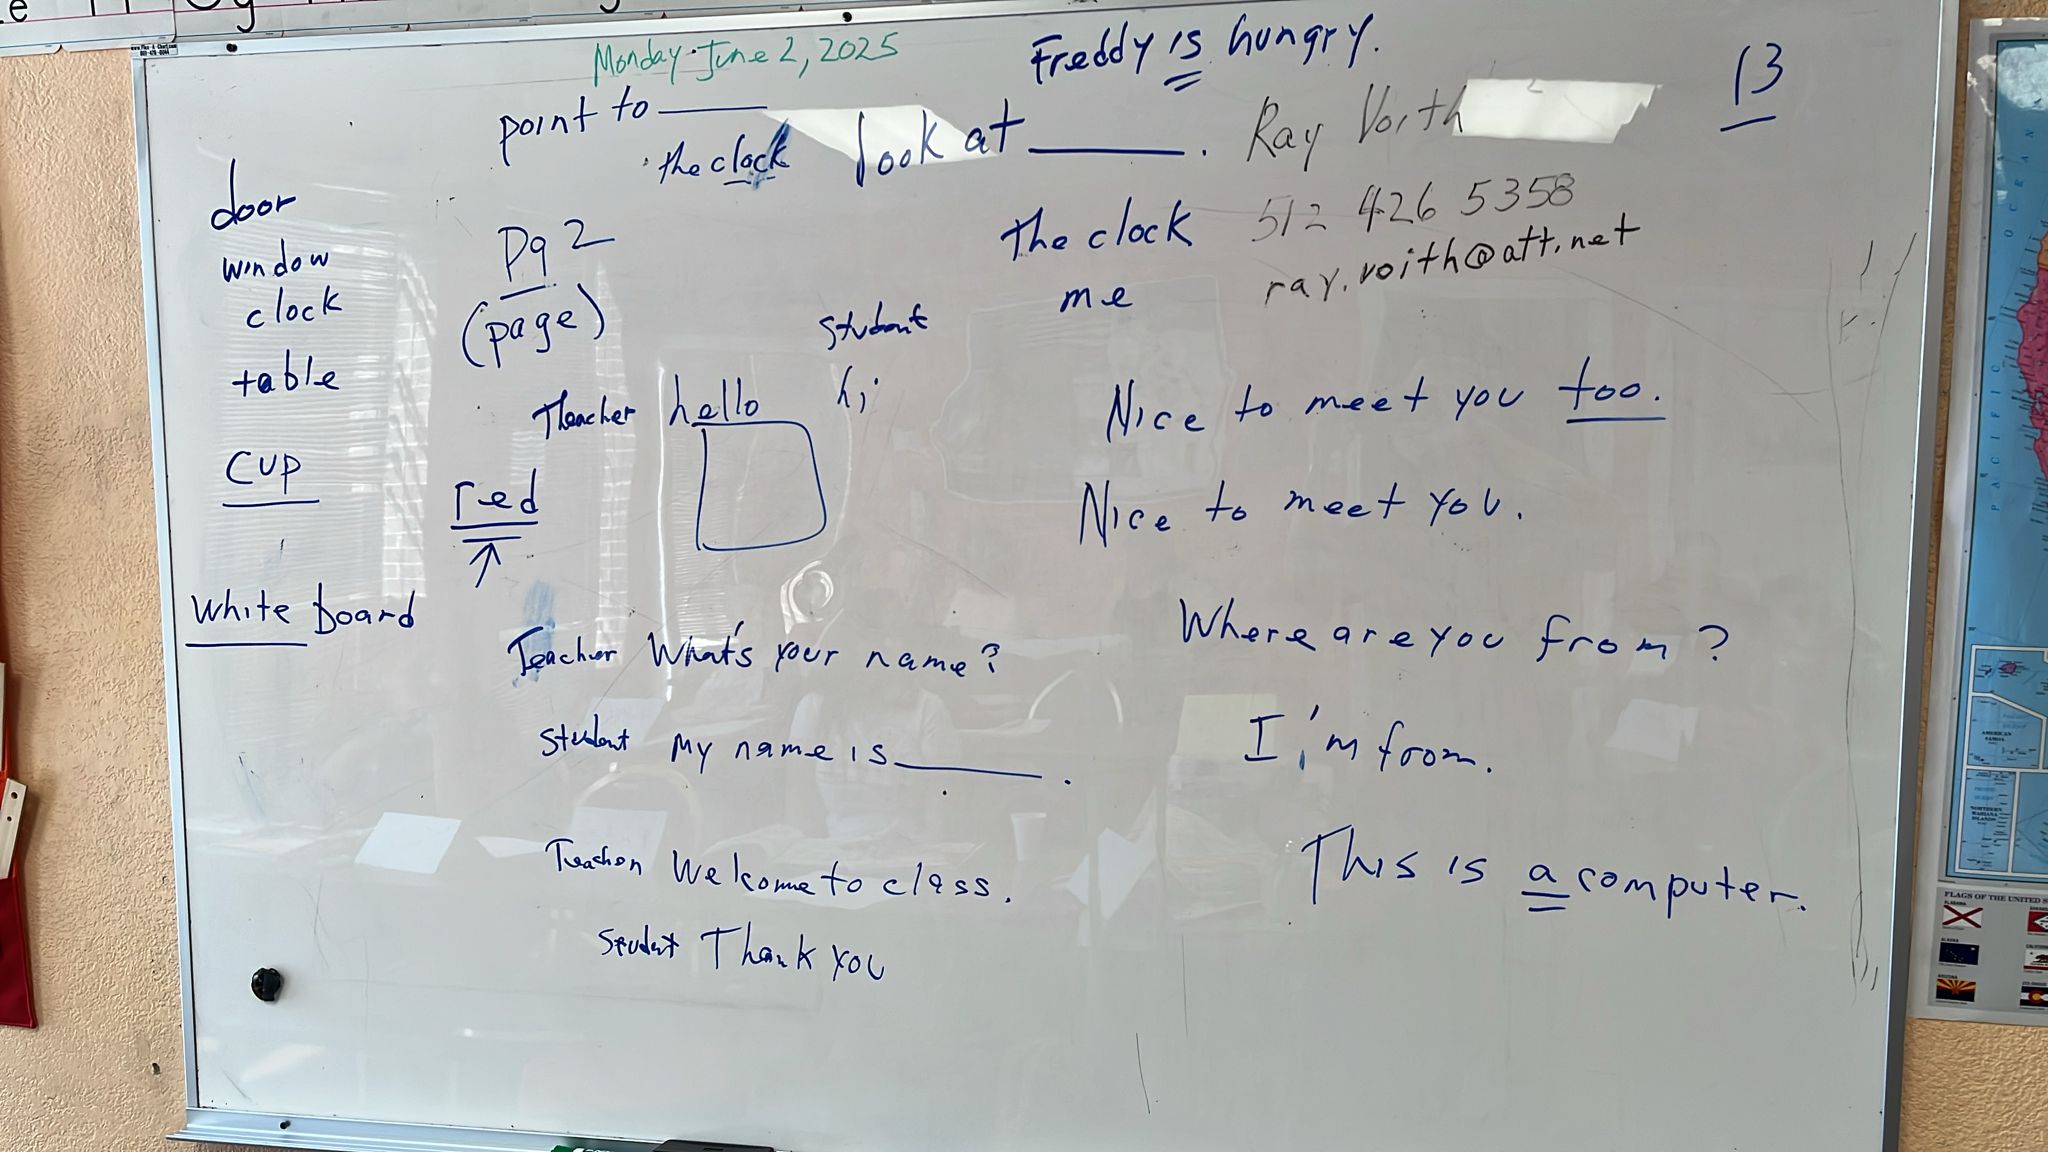 Monday June 2, 2025
Freddy is hungry.
13
point to ______
the clock
look at ______.
the clock
me
Ray Voith
512 426 5358
ray.voith@att.net
door
window
clock
table
cup
white board
Pg 2
(page)
red
student
Theacher hello hi
Nice to meet you too.
Nice to meet you.
Teacher What's your name?
Student My name is ______.
Where are you from?
I'm from.
Teacher Welcome to class.
Student Thank you
This is a computer.
PACIFIC
OCEAN
AMERICAN SAMOA
NORTHERN MARIANA ISLANDS
FLAGS OF THE UNITED S
ALABAMA
ALASKA
ARIZONA